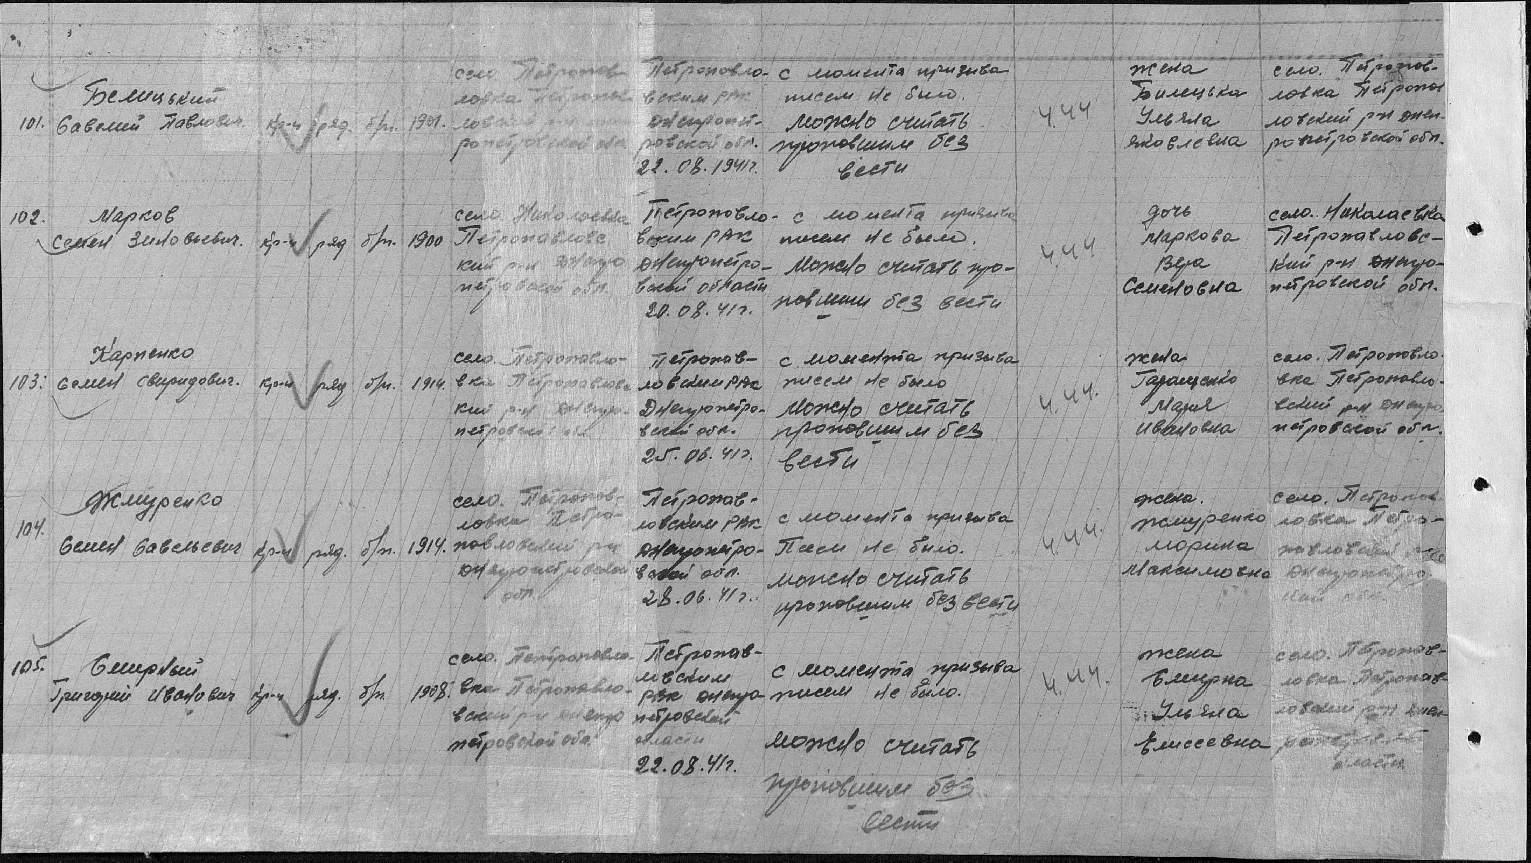 101.
Белицький
Савелий Павлович
кр-н
ряд.
б/п.
1901.
село Петропав-
ловка Петропав-
ловский р-н
ропетровской обл.
Петропавло-
вским РВК
Днепропет-
ровской обл.
22.08.1941г.
с момента призыва
писем не было.
можно считать
проповшим без
вести
4.44
жена
Билецька
Ульяна
Яковлевна
село. Петропав-
ловка Петропав
ловский р-н Днеп-
ропетровской обл.
102.
Марков
Семен Зиновьевич.
кр-н
ряд
б/п.
1900
село. Николаевка
Петропавловс
кий р-н Днепро
петровской обл.
Петропавло-
вским РВК
Днепропетро-
вской области
20.08.41г.
с момента призыва
писем не было.
Можно считать про-
повшим без вести
4.44
дочь
Маркова
Вера
Семеновна
село. Николаевка
Петропавловс-
кий р-н Днепро-
петровской обл.
103.
Карпенко
Семен Свиридович.
кр-н
ряд
б/п.
1914.
село. Петропавло-
вка Петропавловс
кий р-н Днепро-
петровской обл.
Петропав-
ловским РВК
Днепропетро-
вской обл.
25.06.41г.
с момента призыва
писем не было
можно считать
проповшим без
вести
4.44.
жена
Геращенко
Мария
Ивановна
село. Петропавло-
вка Петропавло-
вский р-н Днепро
петровской обл.
104.
Жмуренко
Семен Савельевич
кр-н
ряд.
б/п.
1914.
село. Петропав-
ловка Петро-
павловский р-н
Днепропетровской
обл.
Петропав-
ловским РВК
Днепропетро-
вской обл.
28.06.41г.
с момента призыва
Писем не было.
можно считать
проповшим без вести
4.44.
жена.
Жмуренко
Марина
Максимовна
село. Петропав
ловка Петро-
павловский
Днепропетров
ский обл.
105.
Смирный
Григорий Иванович
кр-н
ряд.
б/п.
1908.
село. Петропавло-
вка Петропавло-
вский р-н Днепро
петровской обл
Петропав-
ловским
РВК Днепро-
петровской
области
22.08.41г.
с момента призыва
писем не было.
можно считать
проповшим без
вести
4.44.
жена
Смирна
Ульяна
Елиссевна
село. Петропав-
ловка Петропав
ловский р-н Днеп-
области